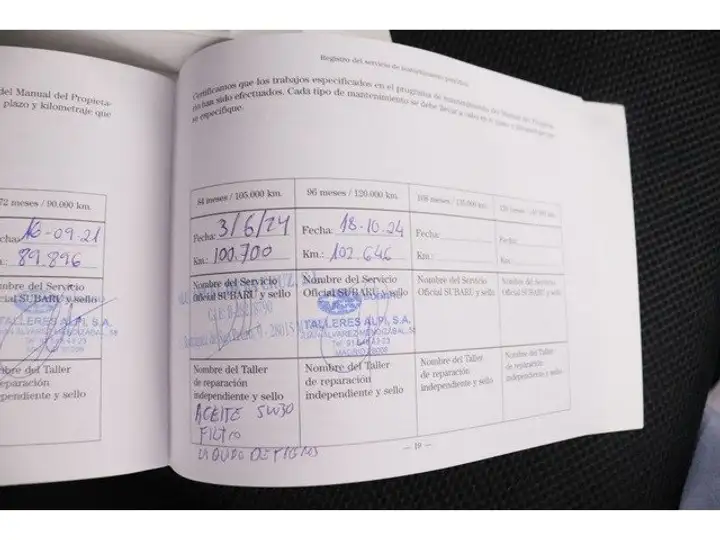 del Manual del Propieta-
plazo y kilometraje que
72 meses / 90.000 km.
Fecha: 16-09-21
Km.: 89.896
Nombre del Servicio
Oficial SUBARU y sello
TALLERES ALPI, S.A.
Nombre del Taller
de reparación
independiente y sello
Registro del servicio de mantenimiento periódico
Certificamos que los trabajos especificados en el programa de mantenimiento del Manual del Propieta-
rio han sido efectuados. Cada tipo de mantenimiento se debe llevar a cabo en el plazo y kilometraje que
se especifique.
84 meses / 105.000 km.
Fecha: 3/6/24
Km.: 100.700
Nombre del Servicio
Oficial SUBARU y sello
28015
Nombre del Taller
de reparación
independiente y sello
ACEITE
FILTRO
96 meses / 120.000 km.
Fecha: 18-10.24
Km.: 102.646
Nombre del Servicio
Oficial SUBARU y sello
TALLERES ALPI, S.A.
MADRID
Nombre del Taller
de reparación
independiente y sello
108 meses / 135.000 km.
Fecha:
Km.:
Nombre del Servicio
Oficial SUBARU y sello
Nombre del Taller
de reparación
independiente y sello
120 meses / 150.000 km.
Fecha:
Km.:
Nombre del Servicio
Oficial SUBARU y sello
Nombre del Taller
de reparación
independiente y sello
— 19 —